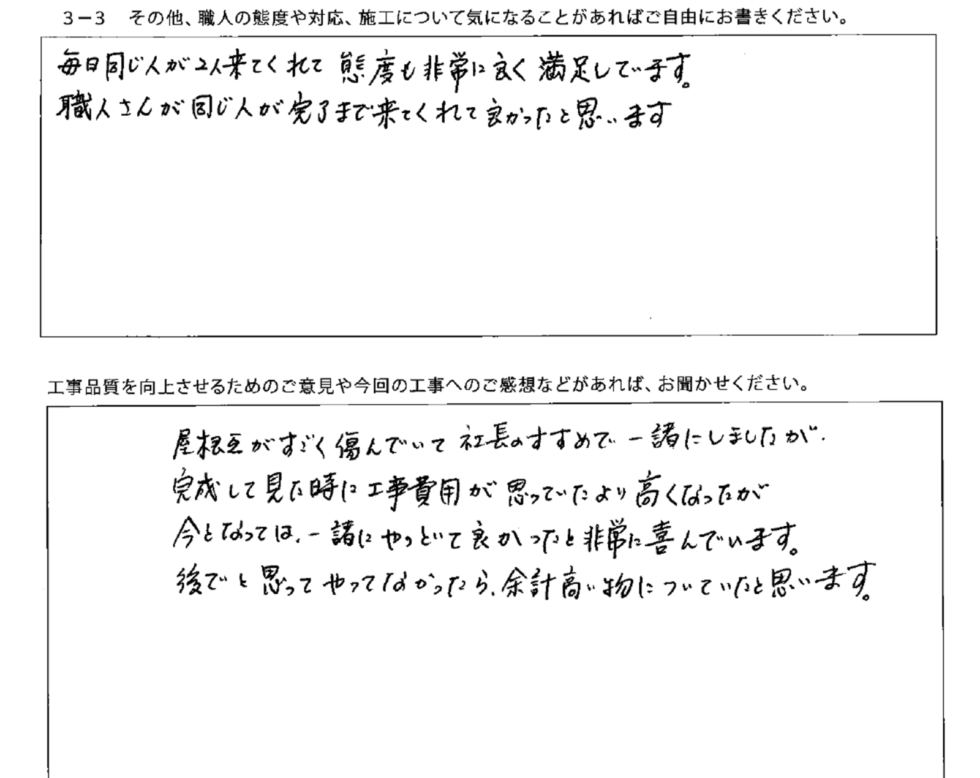 ３－３　その他、職人の態度や対応、施工について気になることがあればご自由にお書きください。
毎日同じ人が2人来てくれて 態度も非常に良く 満足しています。
職人さんが同じ人が完了まで来てくれて良かったと思います
工事品質を向上させるためのご意見や今回の工事へのご感想などがあれば、お聞かせください。
屋根瓦がすごく傷んでいて 社長のすすめで 一諸にしましたが、
完成して見た時に工事費用が思っていたより高くなったが
今となっては、一諸にやっといて良かったと非常に喜んでいます。
後でと思ってやってなかったら、余計高い物についていたと思います。